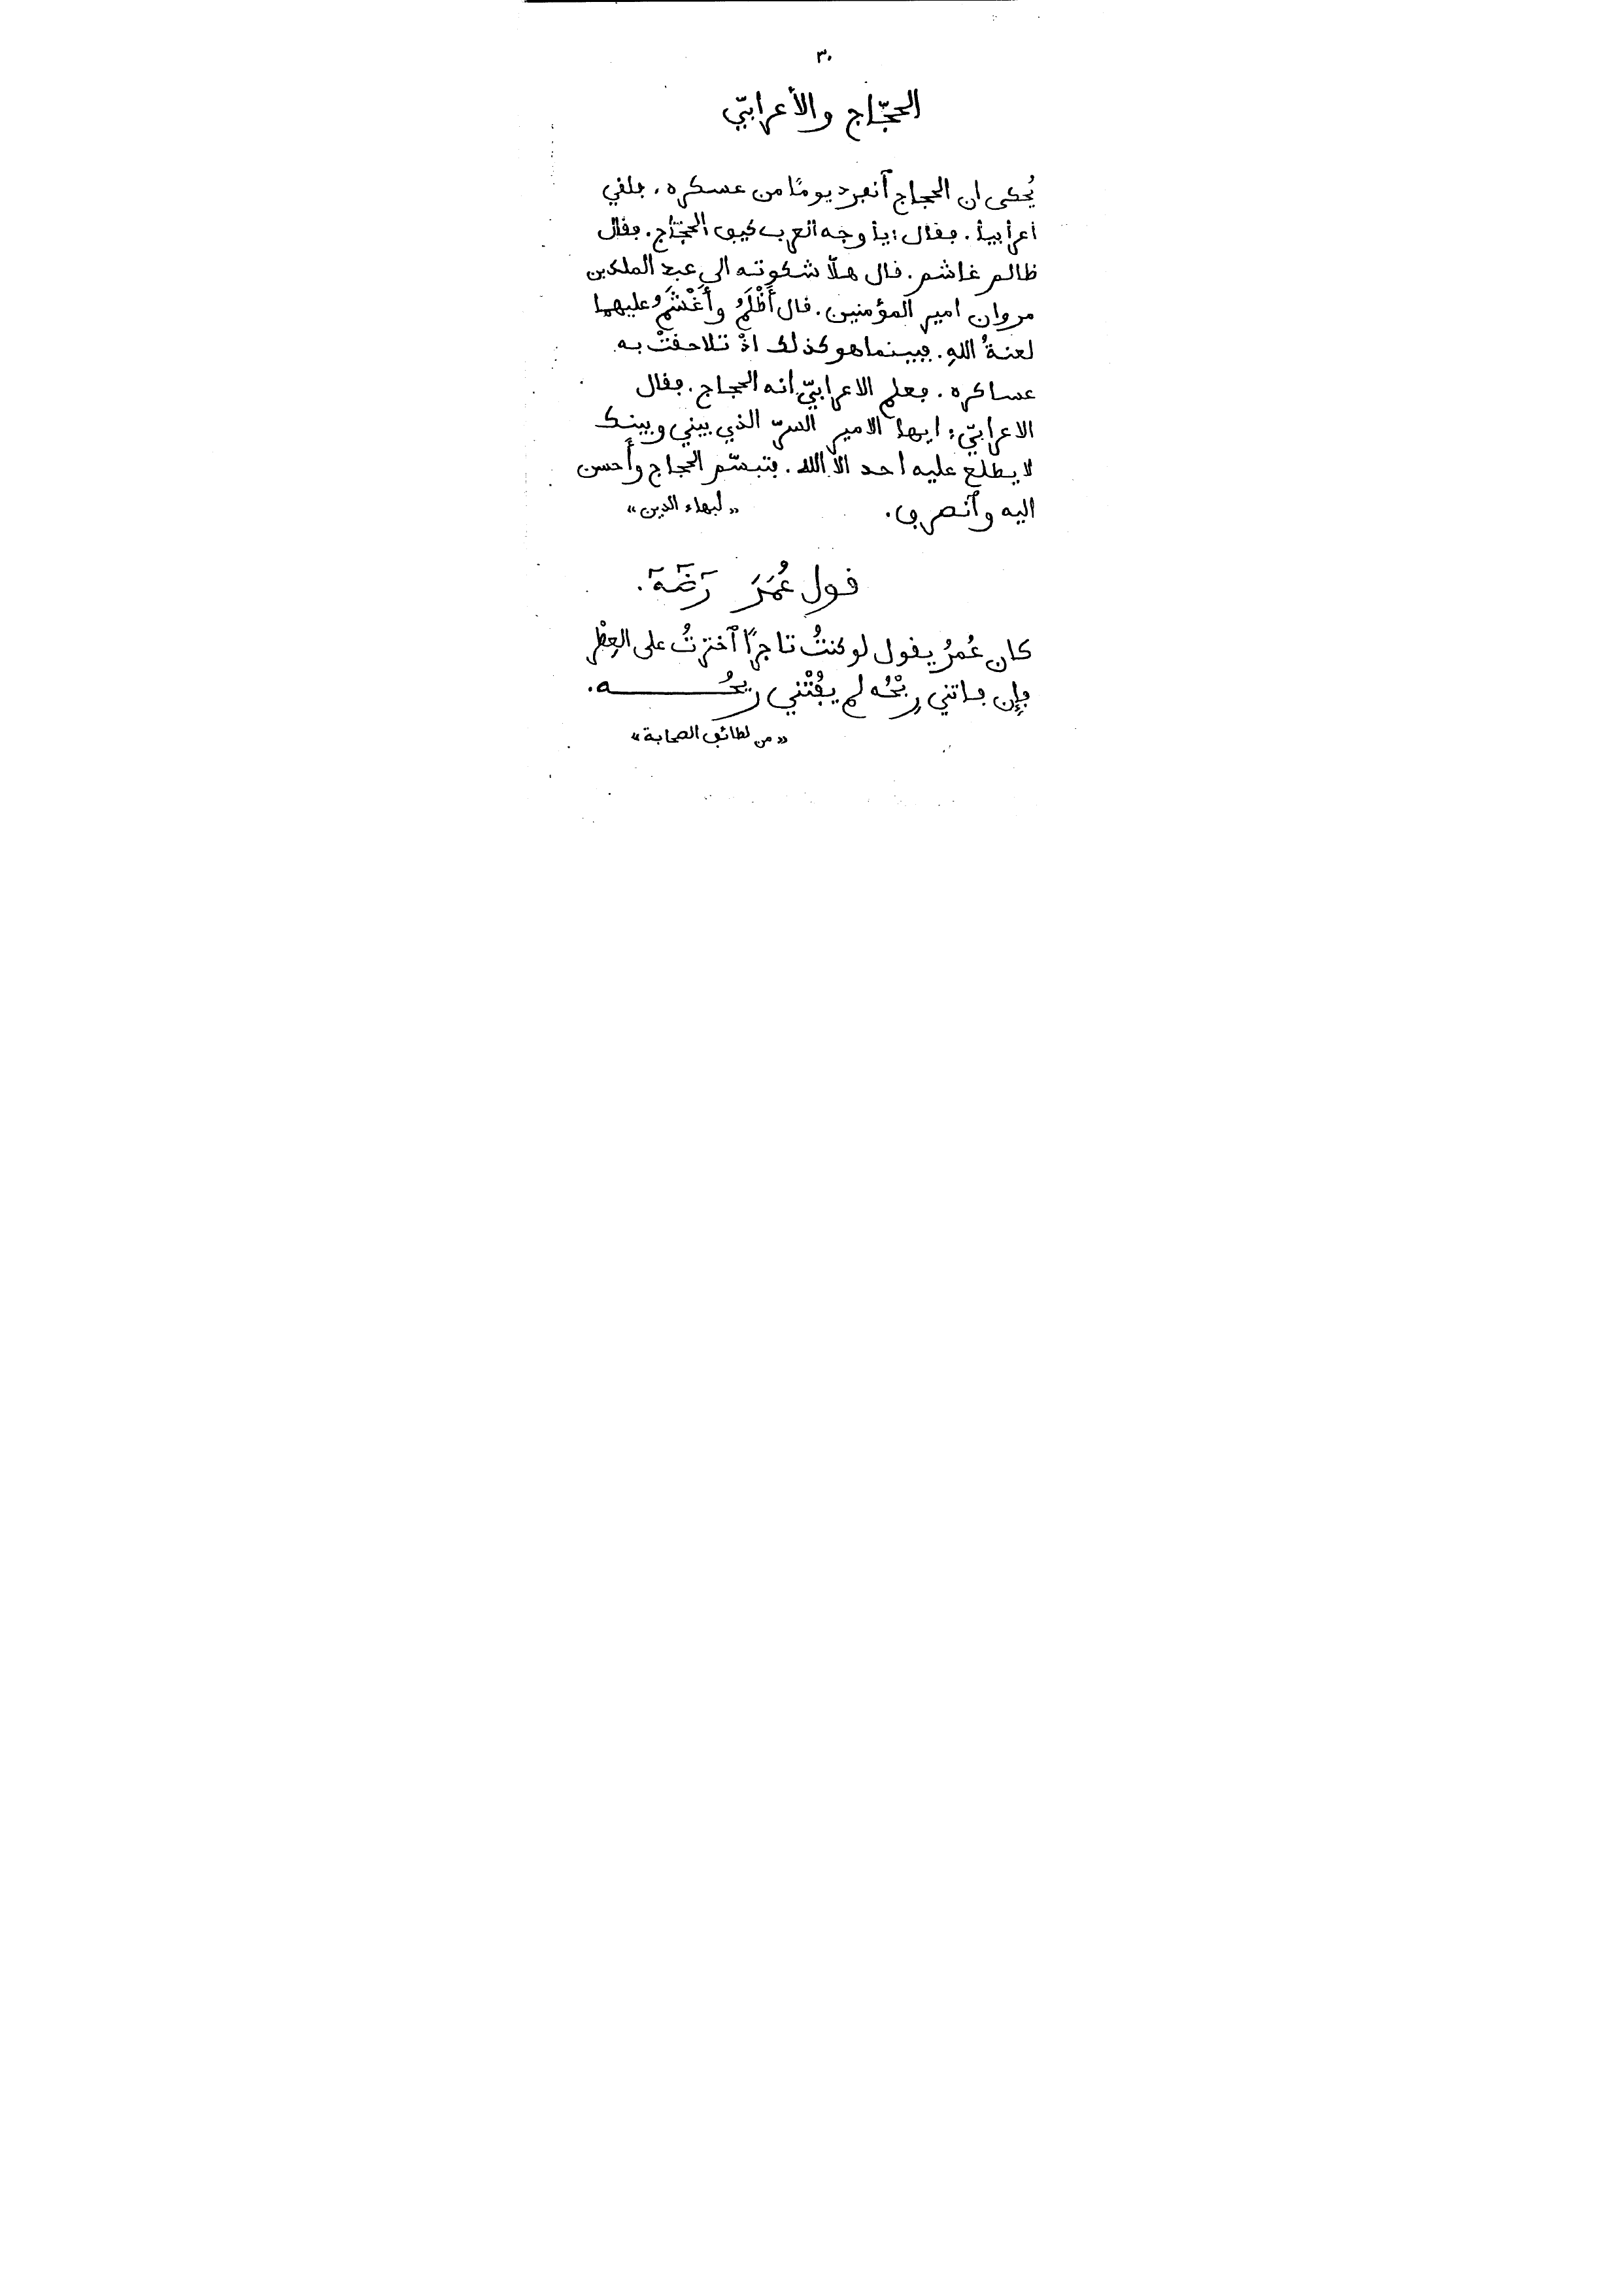 ٣٠
الحجّاج والأعرابيّ
يُحكى ان الحجاج ٱنفرد يومًا من عسكره. فلقي
اعرابيا. فقال: يا وجه العرب كيف الحجّاج. فقال
ظالم غاشم. قال هلّا شكوته الى عبد الملك بن
مروان امير المؤمنين. قال أَظْلَمُ وأَغْشَمُ عليهما
لعنةُ اللهِ. فبينما هو كذلك اذْ تلاحقتْ به
عساكره. فعلم الاعرابيّ انه الحجاج. فقال
الاعرابيّ: ايها الامير السرّ الذي بيني وبينك
لا يطلع عليه احد الا الله. فتبسّم الحجاج وأحسن
اليه وٱنصرف.
«لبهاء الدين»
قول عُمَرَ رَضَهَ.
كان عُمرُ يقول لو كنتُ تاجرًا ٱخترتُ على العِطْر
فإن فاتني رِبْحُه لم يفُتْني ريحُـــه.
«من لطائف الصحابة»